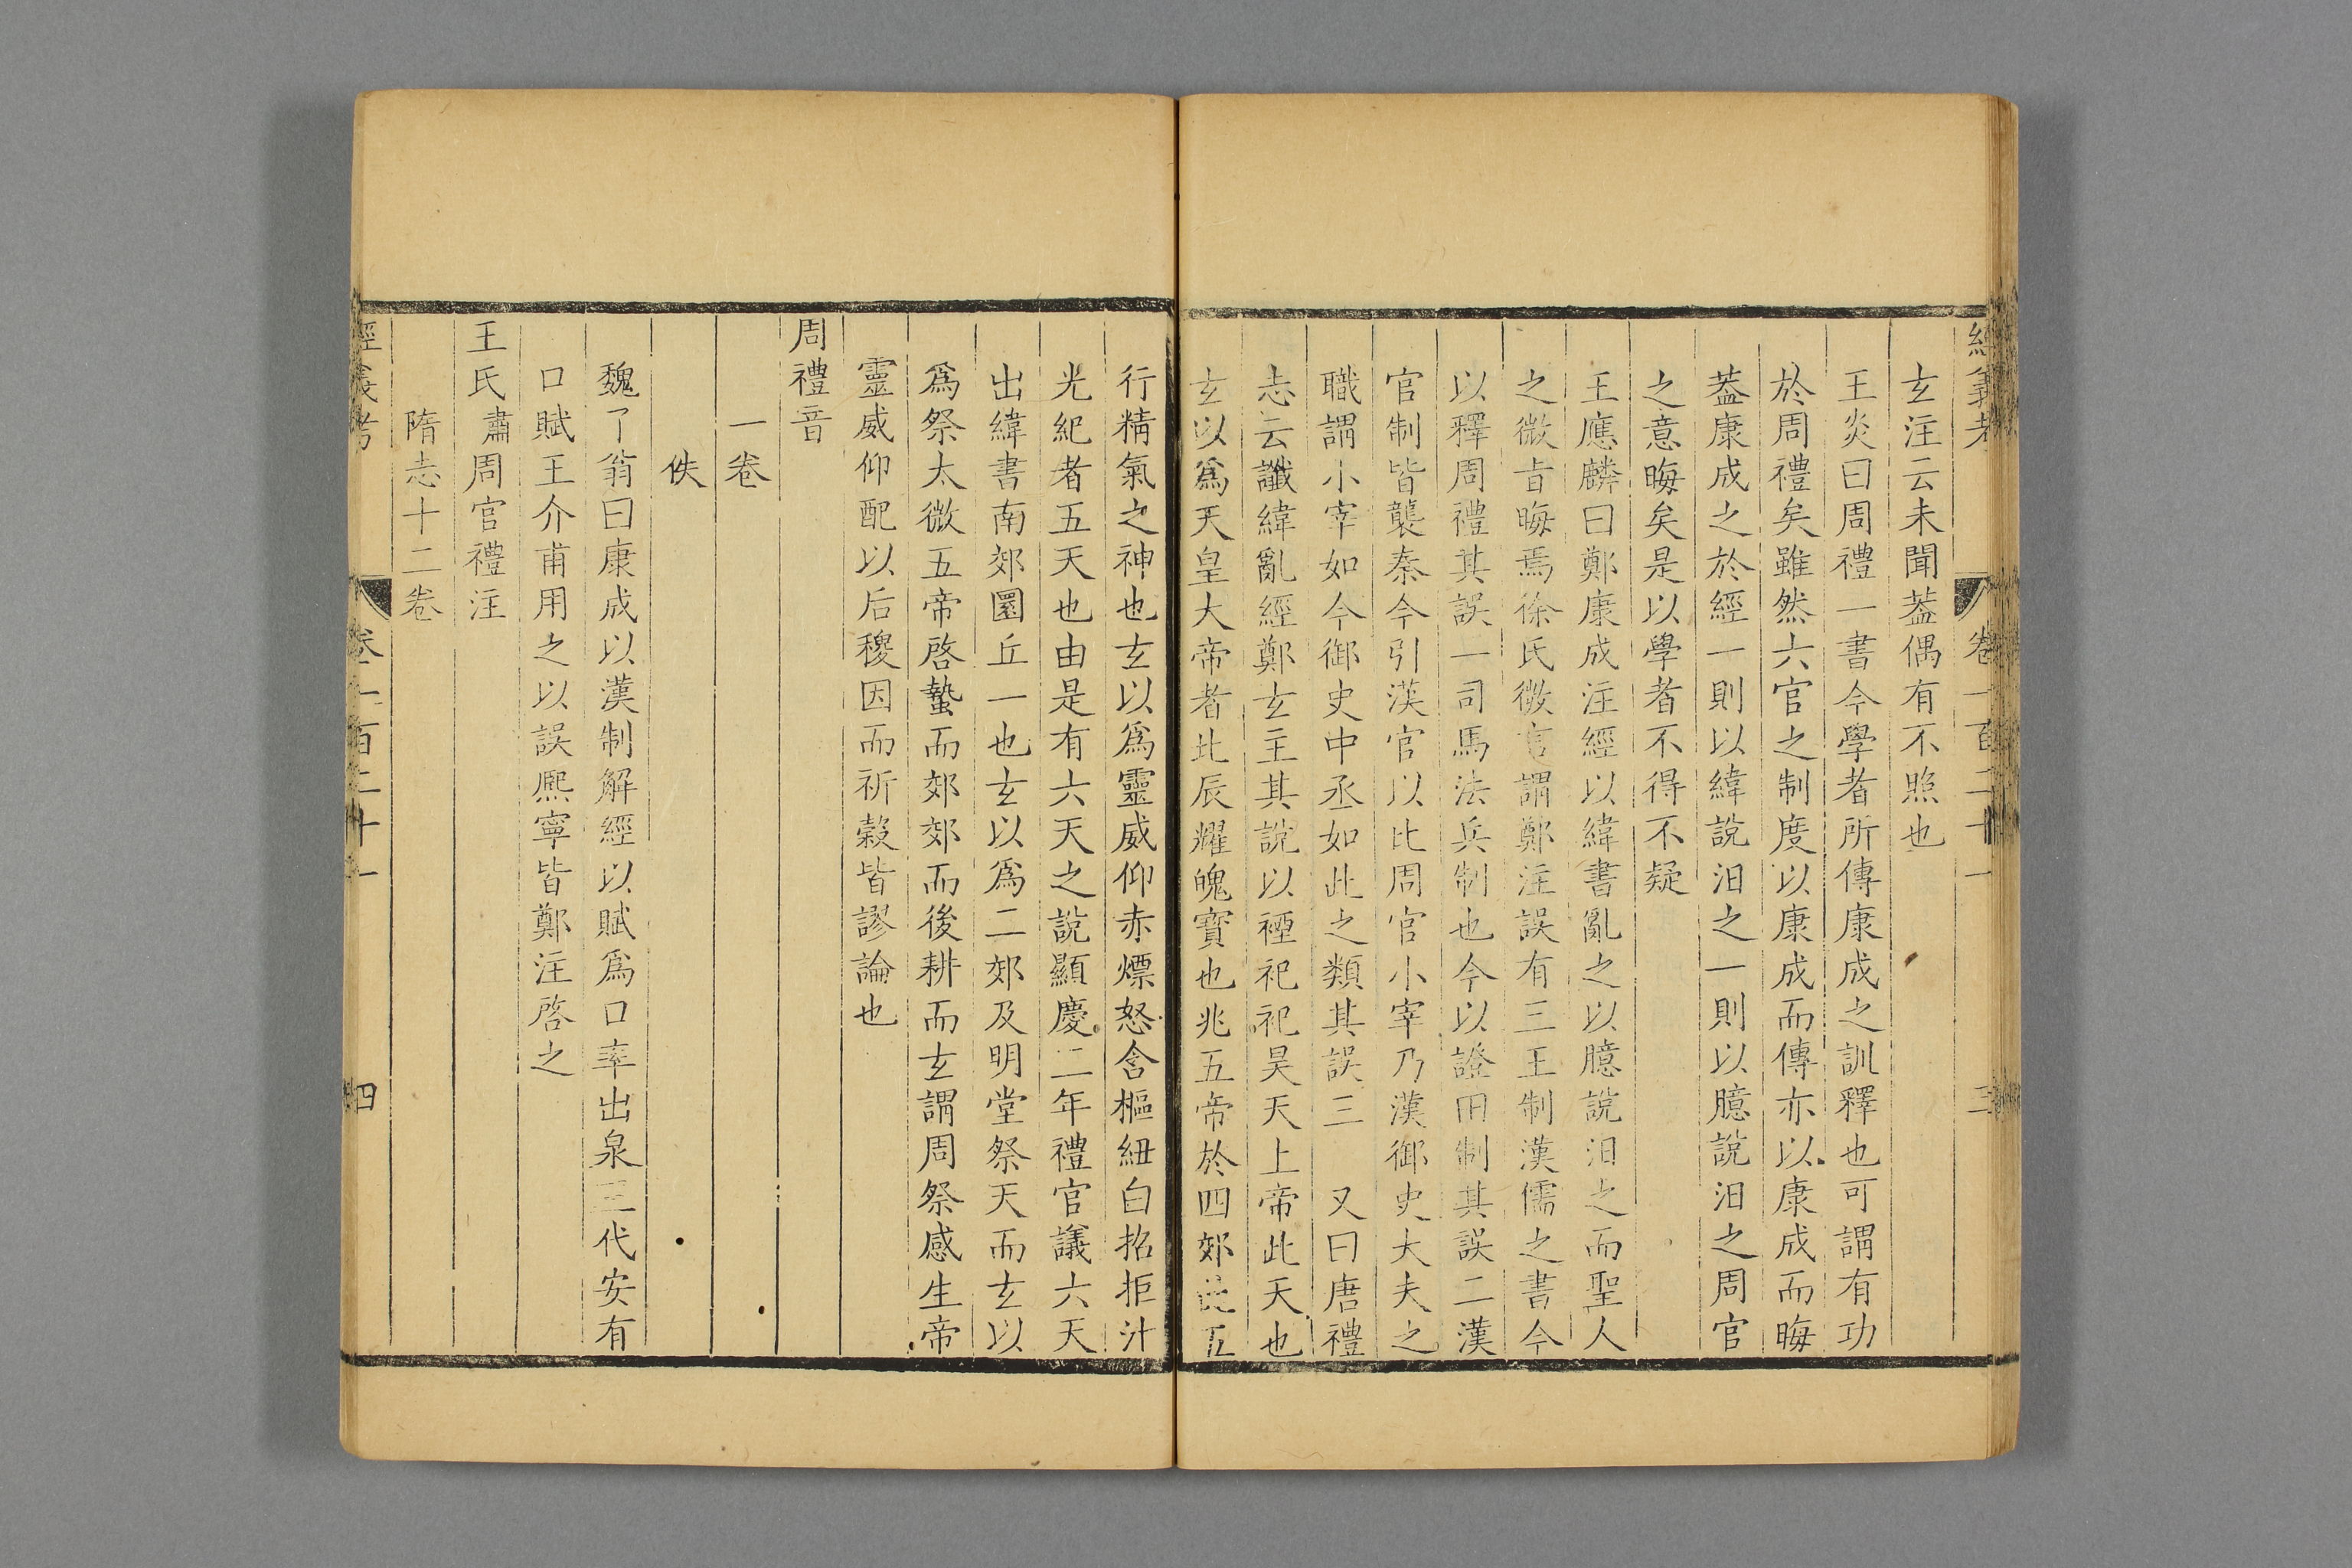 經義考 卷一百二十一 三
玄注云未聞葢偶有不照也
王炎曰周禮一書今學者所傳康成之訓釋也可謂有功
於周禮矣雖然六官之制度以康成而傳亦以康成而晦
葢康成之於經一則以緯說汨之一則以臆說汨之周官
之意晦矣是以學者不得不疑
王應麟曰鄭康成注經以緯書亂之以臆說汨之而聖人
之微旨晦焉徐氏微言謂鄭注誤有三王制漢儒之書今
以釋周禮其誤一司馬法兵制也今以證田制其誤二漢
官制皆襲秦今引漢官以比周官小宰乃漢御史大夫之
職謂小宰如今御史中丞如此之類其誤三 又曰唐禮
志云讖緯亂經鄭玄主其說以禋祀祀昊天上帝此天也
玄以爲天皇大帝者北辰耀魄寶也兆五帝於四郊此五
行精氣之神也玄以爲靈威仰赤熛怒含樞紐白招拒汁
光紀者五天也由是有六天之說顯慶二年禮官議六天
出緯書南郊圜丘一也玄以爲二郊及明堂祭天而玄以
爲祭太微五帝啓蟄而郊郊而後耕而玄謂周祭感生帝
靈威仰配以后稷因而祈穀皆謬論也
周禮音
一卷
佚
魏了翁曰康成以漢制解經以賦爲口率出泉三代安有
口賦王介甫用之以誤熈寧皆鄭注啓之
王氏肅周官禮注
隋志十二卷
經義考 卷一百二十一 四